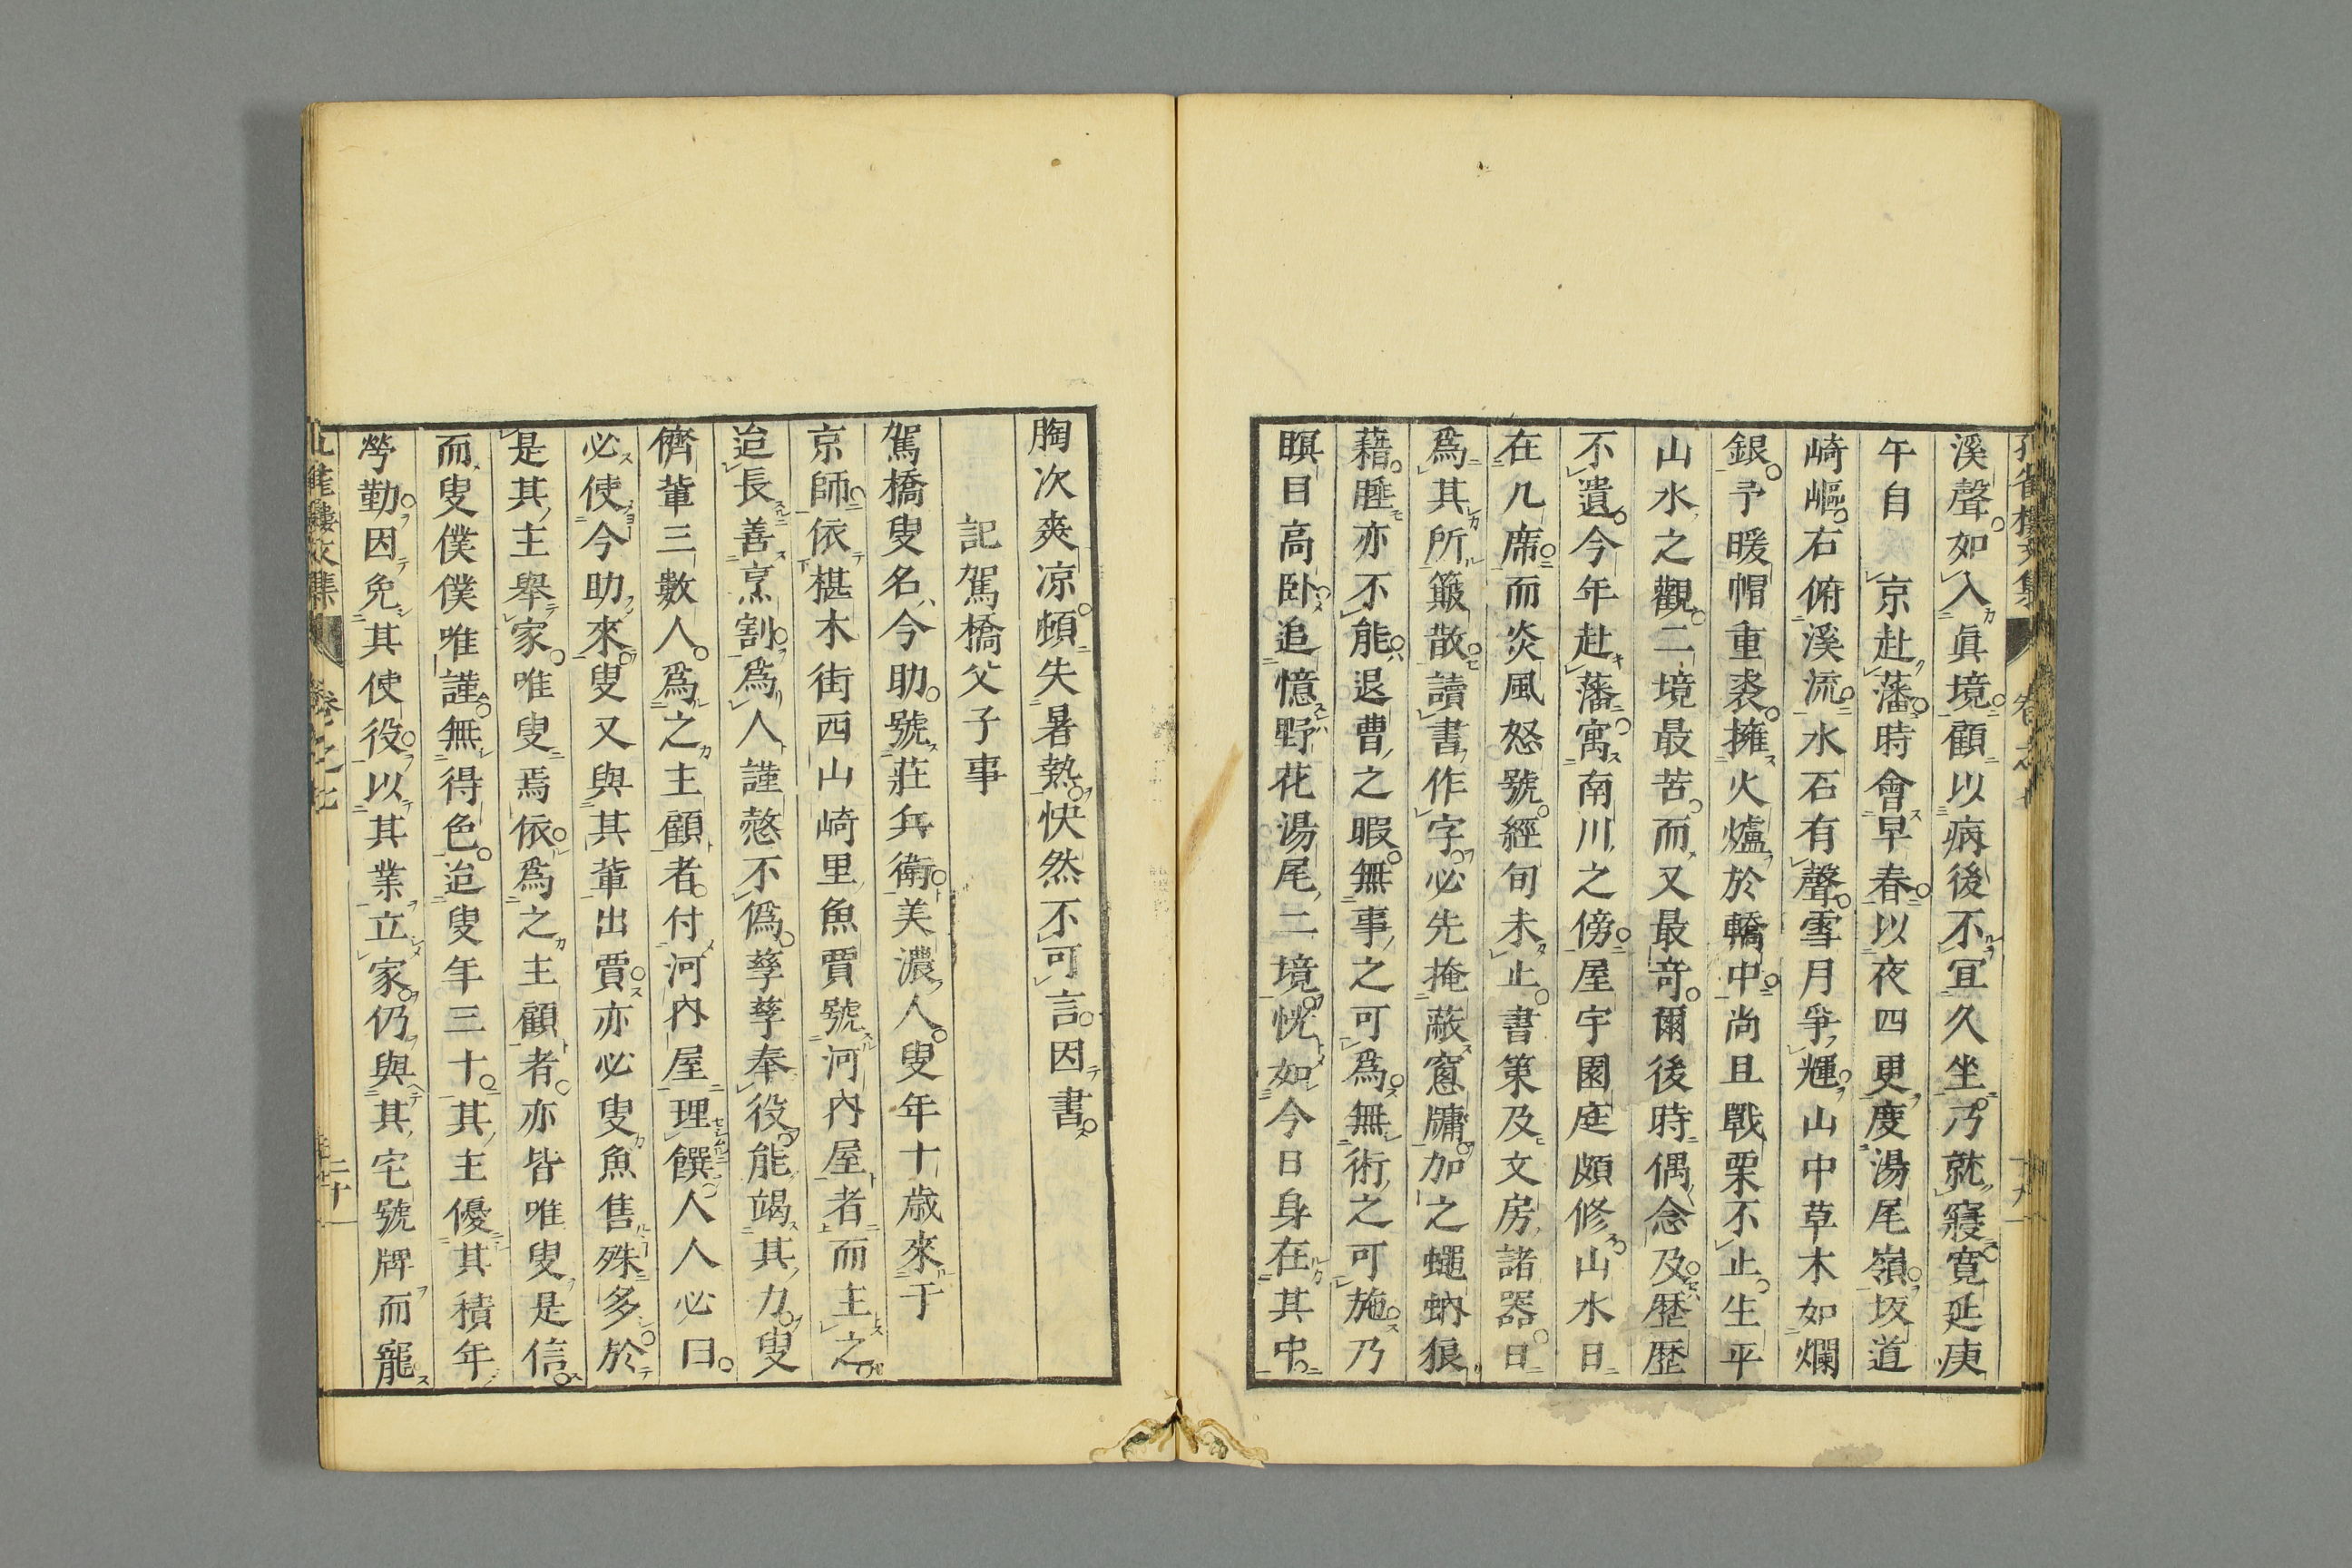 溪聲如入眞境顧以病後不宜久坐乃就寢寛延庚
午自　京赴藩時會早春以夜四更度湯尾嶺坂道
崎嶇右俯溪流水石有聲雪月爭輝山中草木如爛
銀予暖帽重裘擁火爐於轎中尚且戰栗不止生平
山水之觀二境最苦而又最奇爾後時偶念及歴歴
不遺今年赴藩寓南川之傍屋宇園庭頗修山水日
在几席而炎風怒號經旬未止書第及文房諸器日
爲其所簸散讀書作字必先掩蔽窻牖加之蠅蚋狼
藉睡亦不能退曹之暇無事之可爲無術之可施乃
瞑目高卧追憶野花湯尾二境恍如今日身在其中
胸次爽凉頓失暑熱快然不可言因書
記駕橋父子事
駕橋叟名今助號莊兵衛美濃人叟年十歳來于
京師依椹木街西山崎里魚賈號河內屋者而主之
迨長善烹割爲人謹慤不僞孳孳奉役能竭其力叟
儕輩三數人爲之主顧者付河內屋理饌人人必曰
必使今助來叟又與其輩出賈亦必叟魚售殊多於
是其主舉家唯叟焉依爲之主顧者亦皆唯叟是信
而叟僕僕唯謹無得色迨叟年三十其主優其積年
勞勤因免其使役以其業立家仍與其宅號牌而寵
孔雀樓文集
卷之七
二十